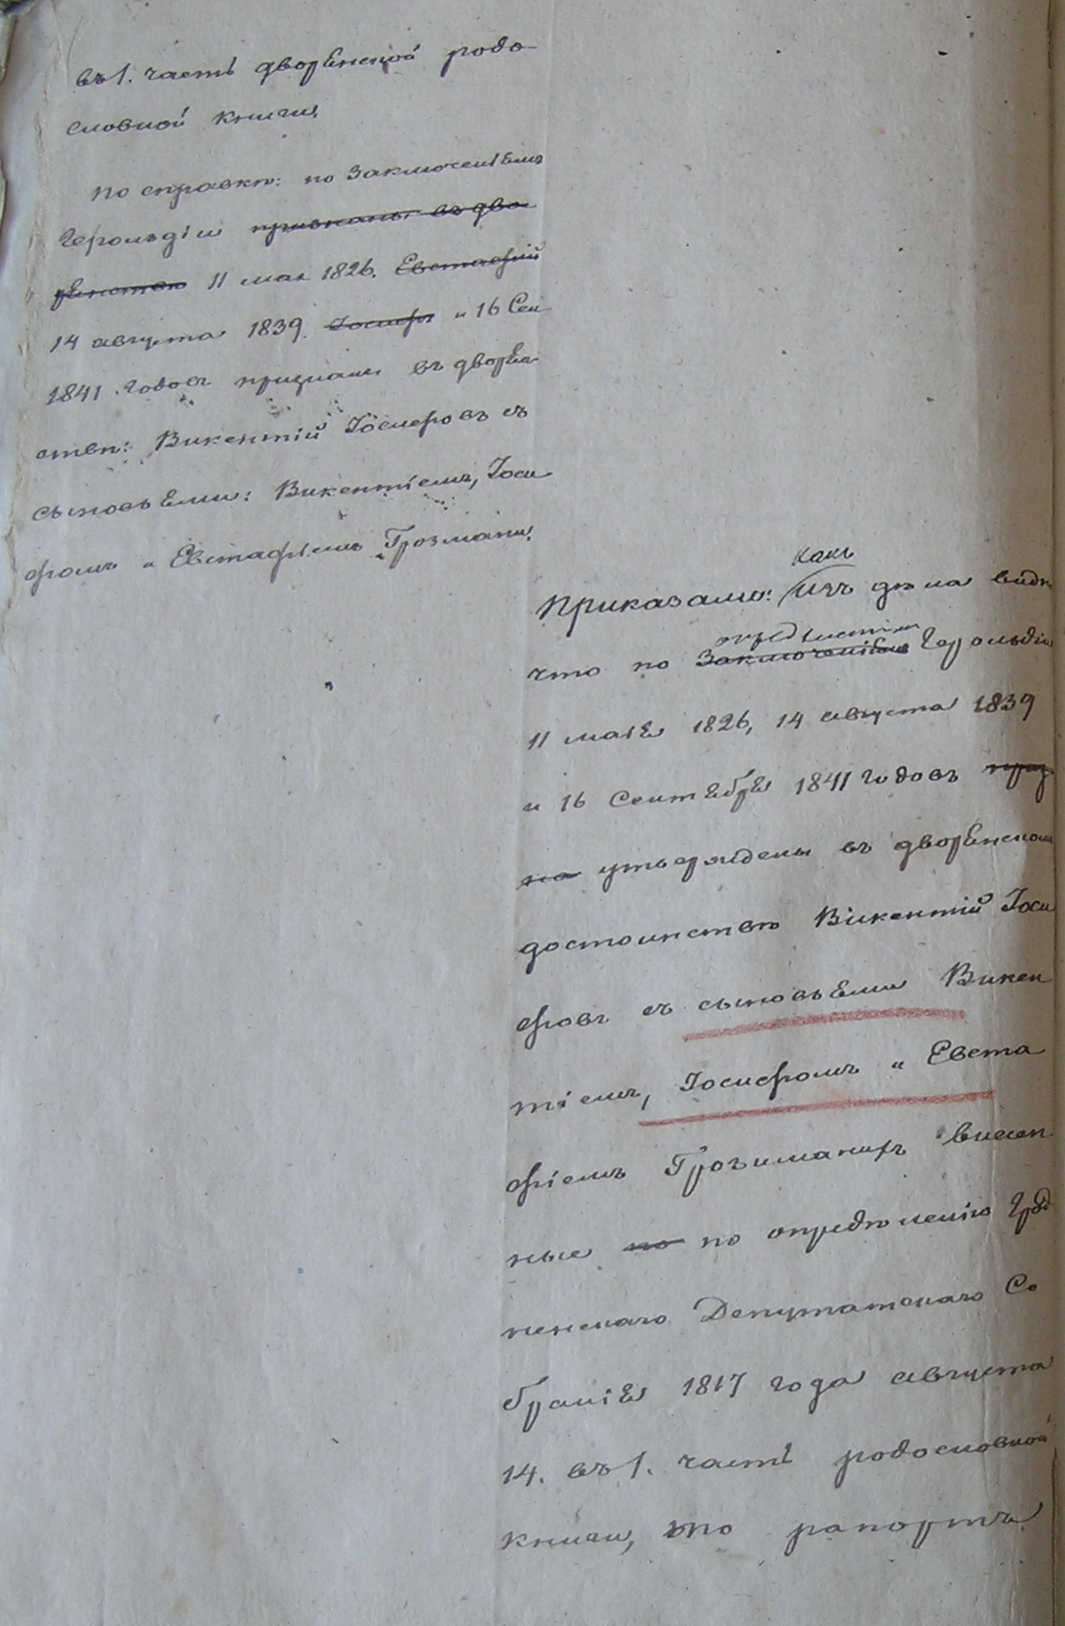 въ 1. часть дворянской родо
словной книги.
По справкѣ: по заключеніямъ
Герольдіи признаны въ дво
рянствѣ 11 мая 1826. Евстафій
14 августа 1839. Іосифъ и 16 Сен
1841 годовъ признаны въ дворян
ствѣ: Викентій Іосифовъ съ
сыновьями: Викентіемъ, Іоси
фомъ и Евстафіемъ Грозмани.
какъ
Приказали: изъ дѣла видн
что по заключеніямъ Герольдіи
11 мая 1826, 14 августа 1839
и 16 Сентября 1841 годовъ приз
на утверждены въ дворянскомъ
достоинствѣ Викентій Іоси
фовъ съ сыновьями Викен
тіемъ, Іосифомъ и Евста
фіемъ внесен
ные по по опредѣленію Грод
ненскаго Депутатскаго Со
бранія 1817 года августа
14. въ 1. часть родословной
книги, то рапортъ